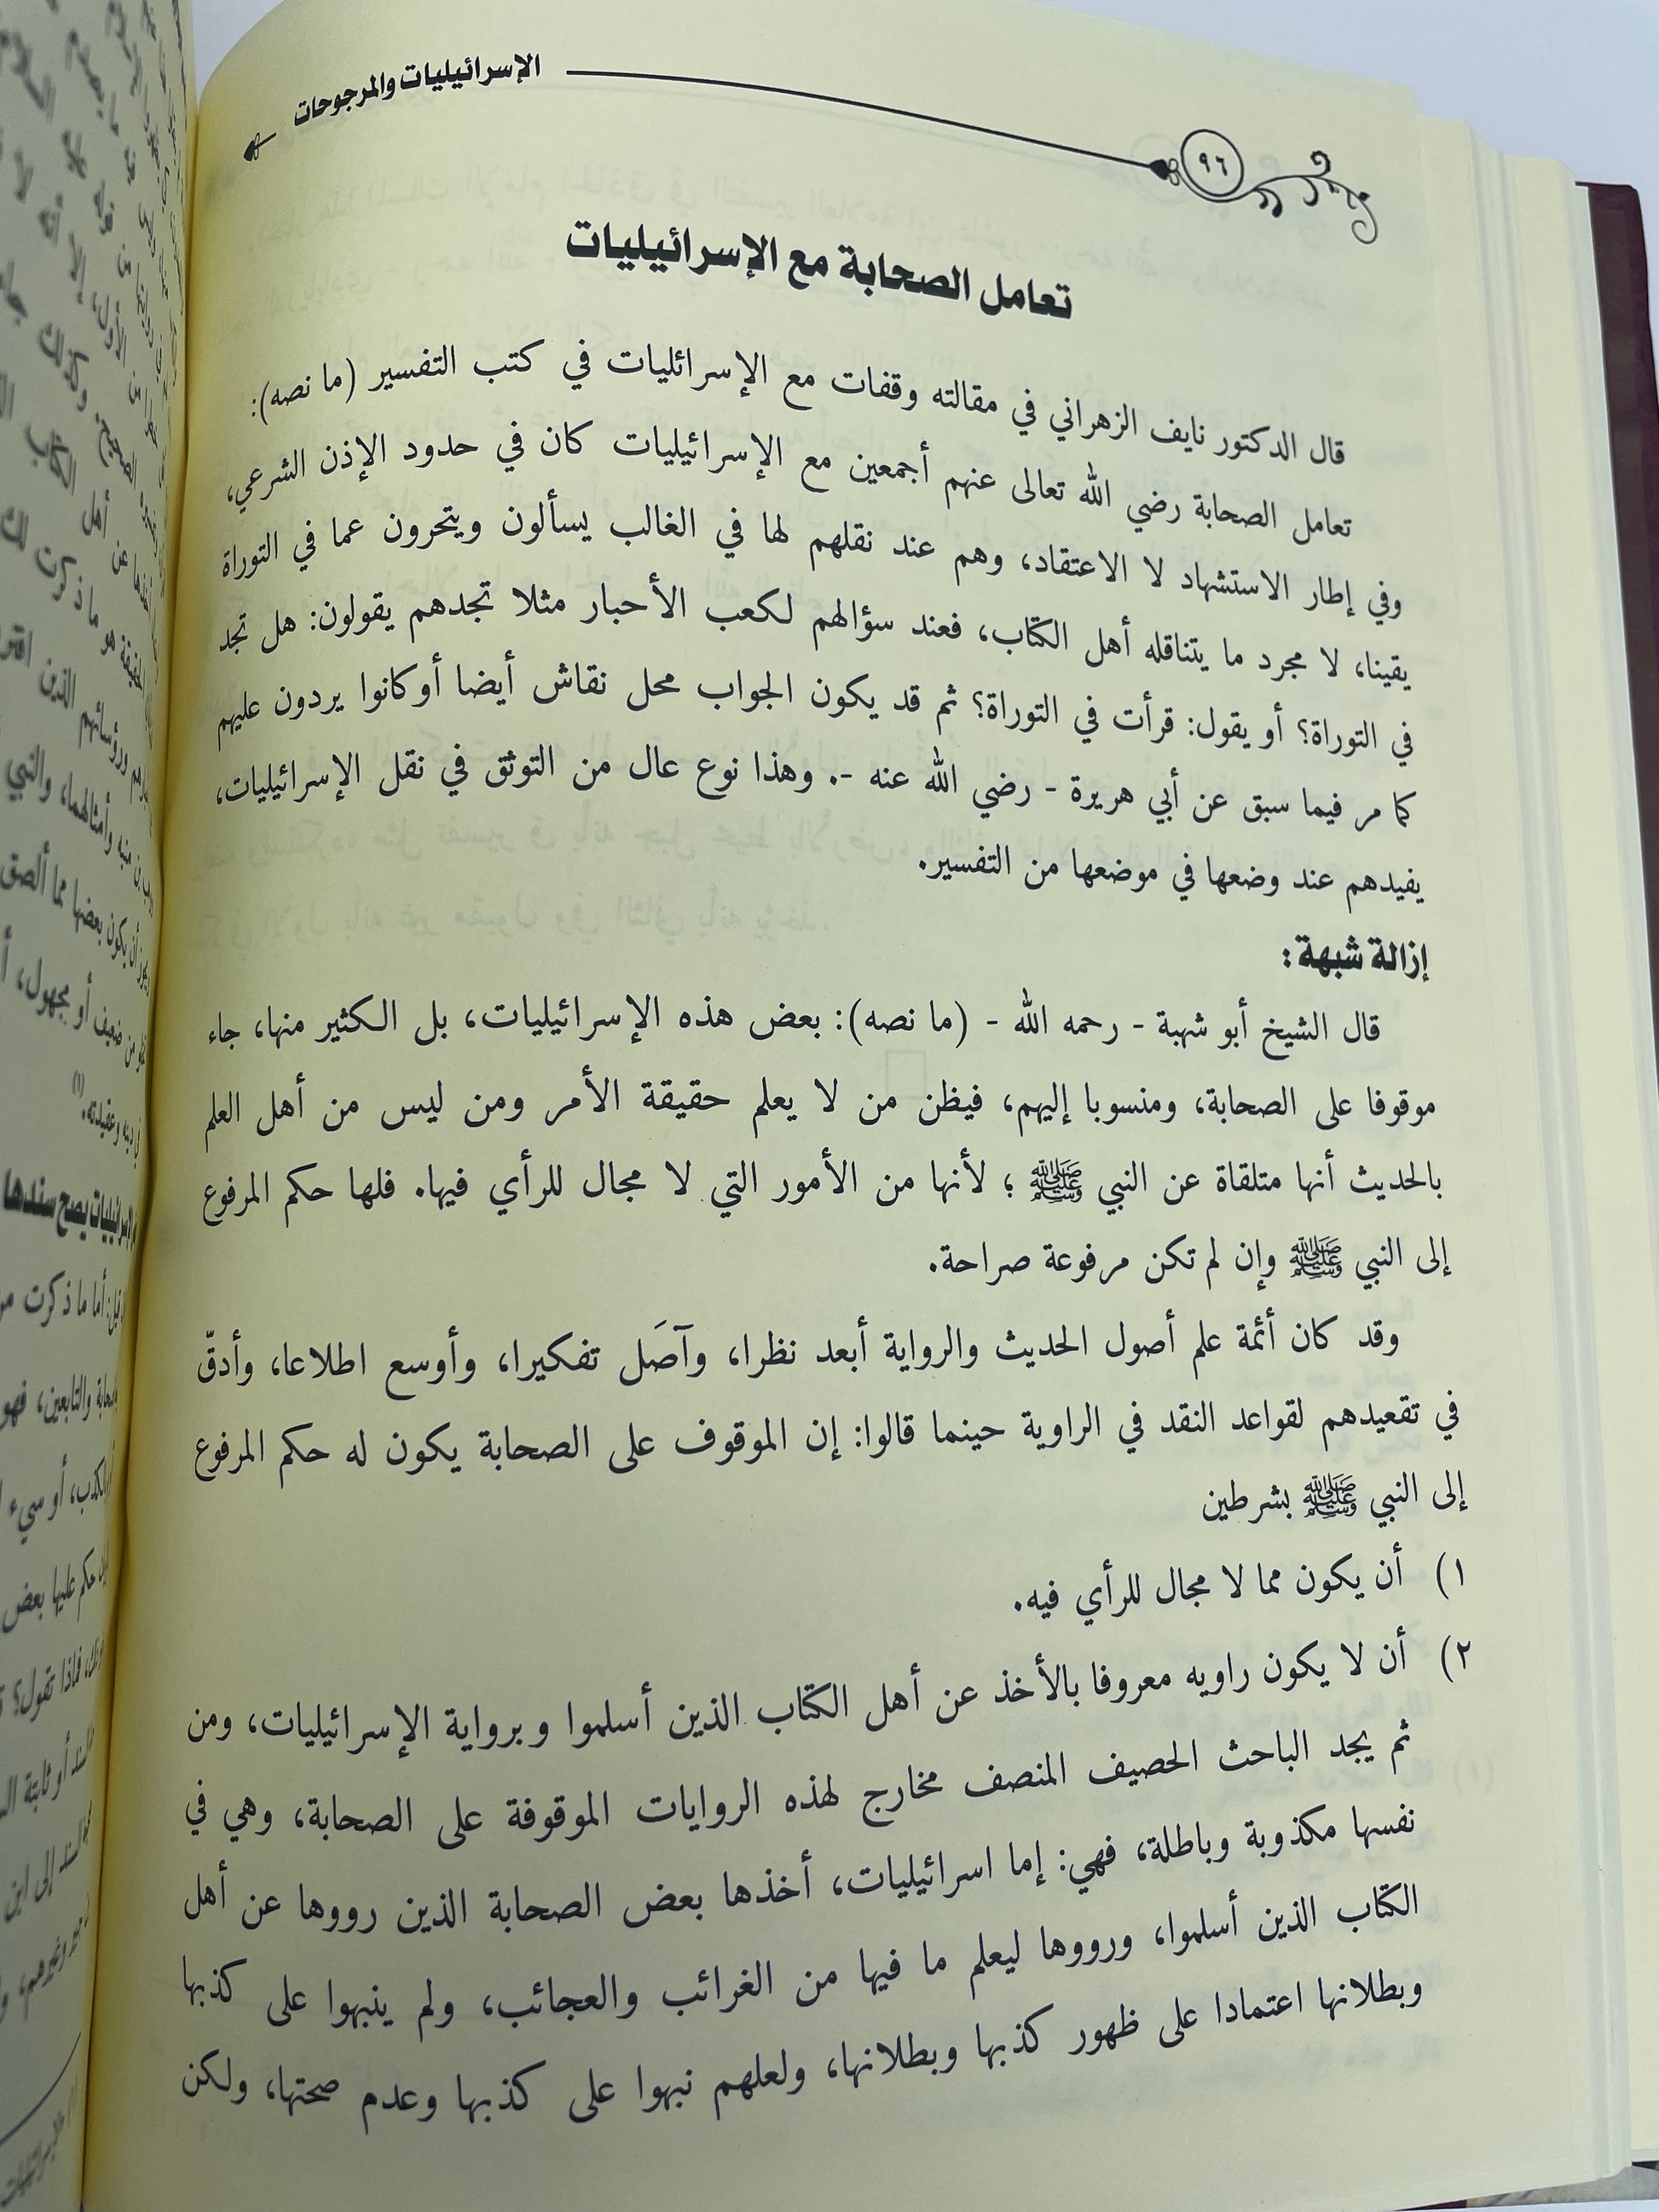 الإسرائيليات والمرجوحات
٩٦
تعامل الصحابة مع الإسرائيليات
قال الدكتور نايف الزهراني في مقالته وقفات مع الإسرائليات في كتب التفسير (ما نصه):
تعامل الصحابة رضي الله تعالى عنهم أجمعين مع الإسرائيليات كان في حدود الإذن الشرعي،
وفي إطار الاستشهاد لا الاعتقاد، وهم عند نقلهم لها في الغالب يسألون ويتحرون عما في التوراة
يقينا، لا مجرد ما يتناقله أهل الكتاب، فعند سؤالهم لكعب الأحبار مثلا تجدهم يقولون: هل تجد
في التوراة؟ أو يقول: قرأت في التوراة؟ ثم قد يكون الجواب محل نقاش أيضا أو كانوا يردون عليهم
كما مر فيما سبق عن أبي هريرة - رضي الله عنه -. وهذا نوع عال من التوثق في نقل الإسرائيليات،
يفيدهم عند وضعها في موضعها من التفسير.
إزالة شبهة:
قال الشيخ أبو شهبة - رحمه الله - (ما نصه): بعض هذه الإسرائيليات، بل الكثير منها، جاء
موقوفا على الصحابة، ومنسوبا إليهم، فيظن من لا يعلم حقيقة الأمر ومن ليس من أهل العلم
بالحديث أنها متلقاة عن النبي ﷺ ؛ لأنها من الأمور التي لا مجال للرأي فيها. فلها حكم المرفوع
إلى النبي ﷺ وإن لم تكن مرفوعة صراحة.
وقد كان أئمة علم أصول الحديث والرواية أبعد نظرا، وآصَل تفكيرا، وأوسع اطلاعا، وأدقّ
في تقعيدهم لقواعد النقد في الراوية حينما قالوا: إن الموقوف على الصحابة يكون له حكم المرفوع
إلى النبي ﷺ بشرطين
١) أن يكون مما لا مجال للرأي فيه.
٢) أن لا يكون راويه معروفا بالأخذ عن أهل الكتاب الذين أسلموا وبرواية الإسرائيليات، ومن
ثم يجد الباحث الحصيف المنصف مخارج لهذه الروايات الموقوفة على الصحابة، وهي في
نفسها مكذوبة وباطلة، فهي: إما اسرائيليات، أخذها بعض الصحابة الذين رووها عن أهل
الكتاب الذين أسلموا، ورووها ليعلم ما فيها من الغرائب والعجائب، ولم ينبهوا على كذبها
وبطلانها اعتمادا على ظهور كذبها وبطلانها، ولعلهم نبهوا على كذبها وعدم صحتها، ولكن